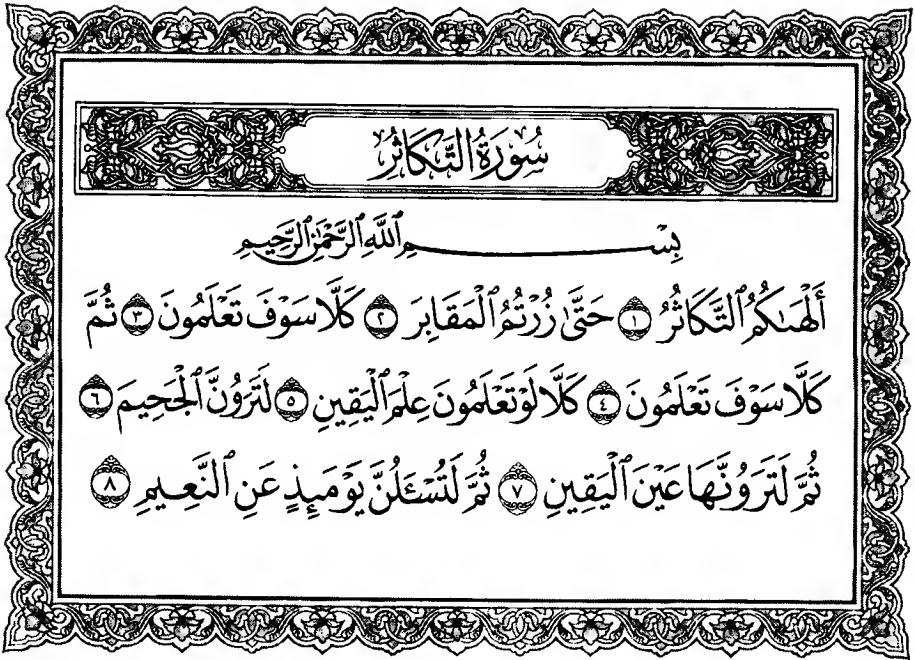 سُورَةُ التَّكَاثُرِ
بِسْمِ ٱللَّهِ ٱلرَّحْمَٰنِ ٱلرَّحِيمِ
أَلْهَىٰكُمُ ٱلتَّكَاثُرُ ١ حَتَّىٰ زُرْتُمُ ٱلْمَقَابِرَ ٢ كَلَّا سَوْفَ تَعْلَمُونَ ٣ ثُمَّ
كَلَّا سَوْفَ تَعْلَمُونَ ٤ كَلَّا لَوْ تَعْلَمُونَ عِلْمَ ٱلْيَقِينِ ٥ لَتَرَوُنَّ ٱلْجَحِيمَ ٦
ثُمَّ لَتَرَوُنَّهَا عَيْنَ ٱلْيَقِينِ ٧ ثُمَّ لَتُسْـَٔلُنَّ يَوْمَئِذٍ عَنِ ٱلنَّعِيمِ ٨